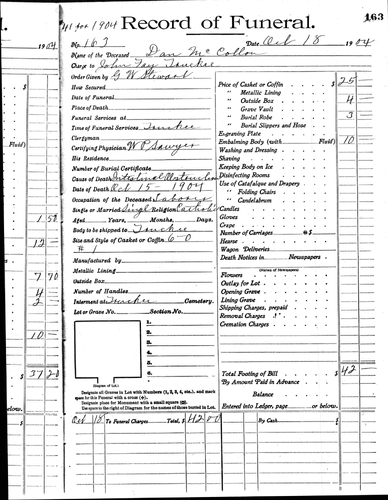 41 for 1904
Record of Funeral.
163
1904
No. 163
Date Oct 18 1904
Name of the Deceased Dan McCollon
Charge to John Fay Truckee
Order Given by G W Stewart
How Secured
Date of Funeral
Place of Death
Funeral Services at
Time of Funeral Services Truckee
Clergyman
Certifying Physician W P Sawyer
His Residence
Number of Burial Certificate
Cause of Death Intestinal Obstruction
Date of Death Oct 15 - 1904
Occupation of the Deceased Laborer
Single or Married Singl Religion Catholic
Aged Years, Months, Days.
Body to be shipped to Truckee
Size and Style of Casket or Coffin 6-0
# 1
Manufactured by
Metallic Lining
Outside Box
Number of Handles
Interment at Truckee Cemetery.
Lot or Grave No. Section No.
1.
2.
3.
4.
5.
6.
(Diagram of Lot.)
Designate all Graves in Lot with Numbers (1, 2, 3, 4, etc.), and mark
upon this Funeral with a cross (+).
Designate place for Monument with a small square (□).
Use up on the right of Diagram for the names of those buried in Lot.
Price of Casket or Coffin $ 25
" Metallic Lining
" Outside Box 4
" Grave Vault
" Burial Robe 3
" Burial Slippers and Hose
Engraving Plate
Embalming Body (with Fluid) 10
Washing and Dressing
Shaving
Keeping Body on Ice
Disinfecting Rooms
Use of Catafalque and Drapery
" Folding Chairs
" Candelabrum
Candles
Gloves
Crape
Number of Carriages @ $
Hearse
Wagon Deliveries
Death Notices in Newspapers
(Names of Newspapers)
Flowers
Outlay for Lot
Opening Grave
Lining Grave
Shipping Charges, prepaid
Removal Charges
Cremation Charges
Total Footing of Bill $ 42
By Amount Paid in Advance
Balance
Entered into Ledger, page or below.
Oct 18 To Funeral Charges Total, $ 42 00 By Cash
Fluid)
1 50
12
7 70
4
2
10
$ 37 20
below.